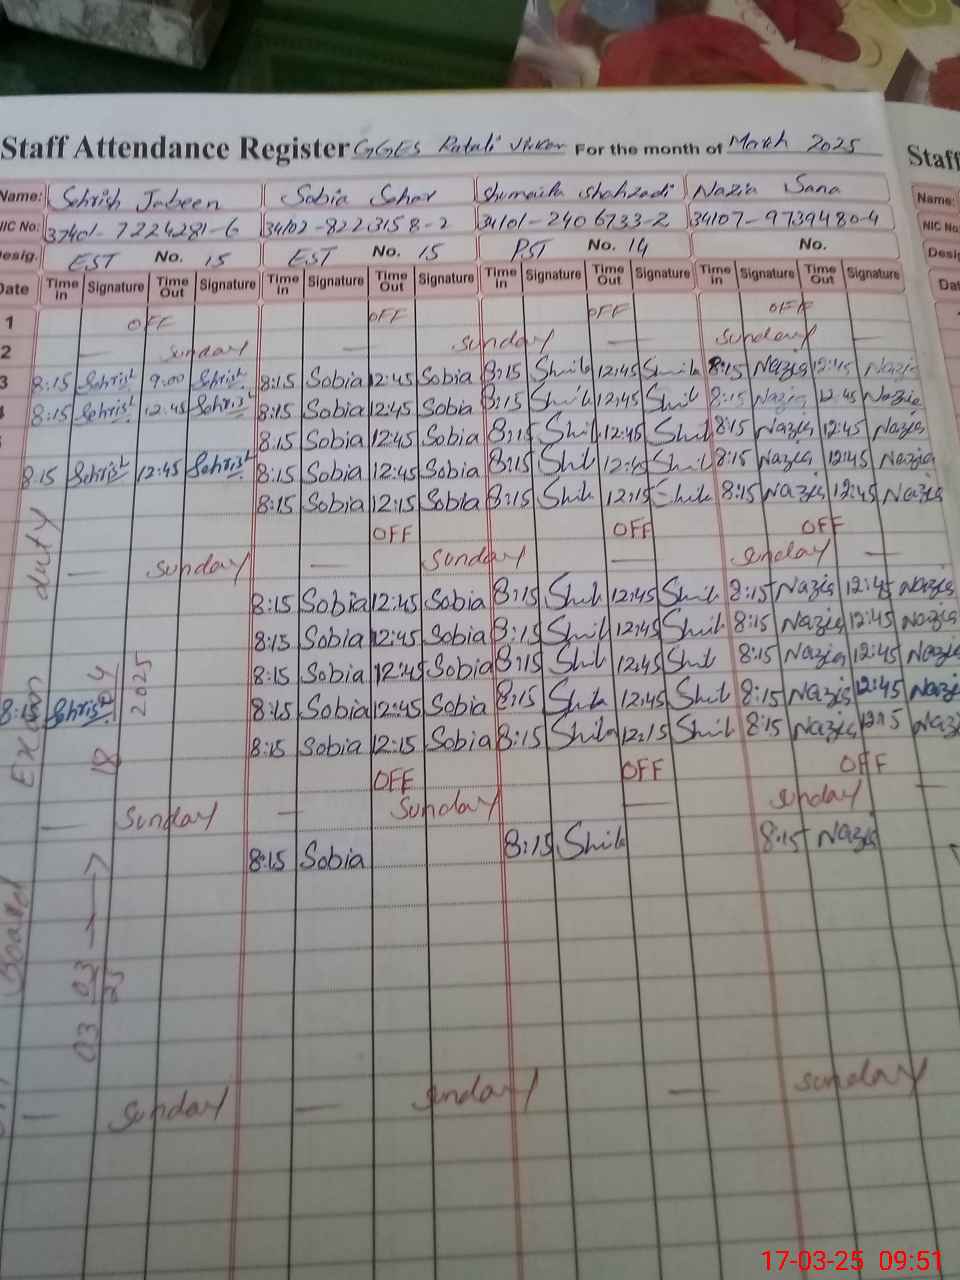 Staff Attendance Register GGES For the month of March 2025 Staff
Name: Sehrish Jabeen Sobia Sahar Shumaila Shahzadi Nazia Sana Name:
NIC No: 37401-7224281-6 34102-8223158-2 34101-2406733-2 34107-9739480-4 NIC No:
Desig. EST No. 15 EST No. 15 PST No. 14 No. Desig
Date Time In Signature Time Out Signature Time In Signature Time Out Signature Time In Signature Time Out Signature Time In Signature Time Out Signature Dat
1 OFF OFF OFF OFF
2 — Sunday — Sunday — Sunday —
3 8:15 Sehrish 9:00 Sehrish 8:15 Sobia 12:45 Sobia 8:15 Shik 12:45 Shik 8:15 Nazia 12:45 Nazia
8:15 Sehrish 12:45 Sehrish 8:15 Sobia 12:45 Sobia 8:15 Shik 12:45 Shik 8:15 Nazia 12:45 Nazia
8:15 Sobia 12:45 Sobia 8:15 Shik 12:45 Shik 8:15 Nazia 12:45 Nazia
8:15 Sehrish 12:45 Sehrish 8:15 Sobia 12:45 Sobia 8:15 Shik 12:45 Shik 8:15 Nazia 12:45 Nazia
8:15 Sobia 12:15 Sobia 8:15 Shik 12:15 Shik 8:15 Nazia 12:45 Nazia
OFF OFF OFF
— Sunday — Sunday — Sunday —
8:15 Sobia 12:45 Sobia 8:15 Shik 12:45 Shik 8:15 Nazia 12:45 Nazia
8:15 Sobia 12:45 Sobia 8:15 Shik 12:45 Shik 8:15 Nazia 12:45 Nazia
8:15 Sobia 12:45 Sobia 8:15 Shik 12:45 Shik 8:15 Nazia 12:45 Nazia
8:15 Sehrish 8:15 Sobia 12:45 Sobia 8:15 Shik 12:45 Shik 8:15 Nazia 12:45 Nazia
8:15 Sobia 12:15 Sobia 8:15 Shik 12:15 Shik 8:15 Nazia 12:15 Naz
OFF OFF OFF
— Sunday — Sunday — Sunday —
8:15 Sobia 8:15 Shik 8:15 Nazia
— Sunday — Sunday — Sunday
Board Exam duty
03 03 25 → 18 4 2025
17-03-25 09:51